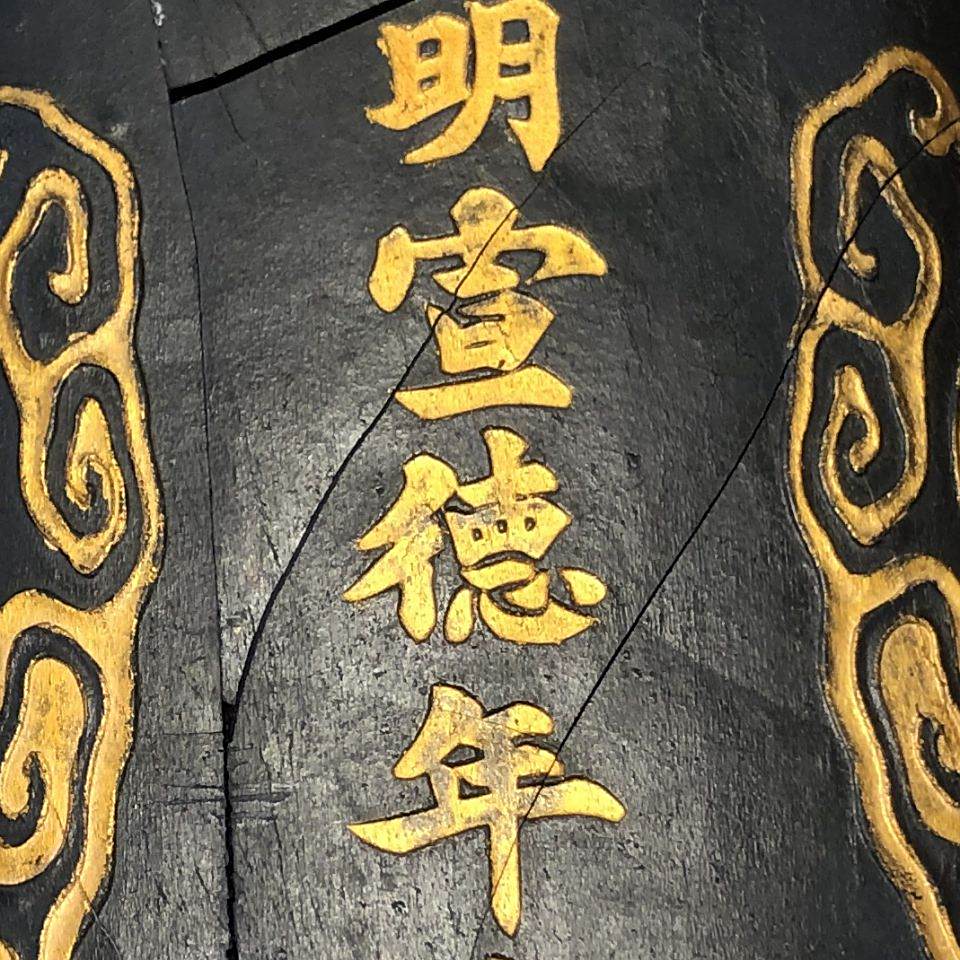 明宣德年